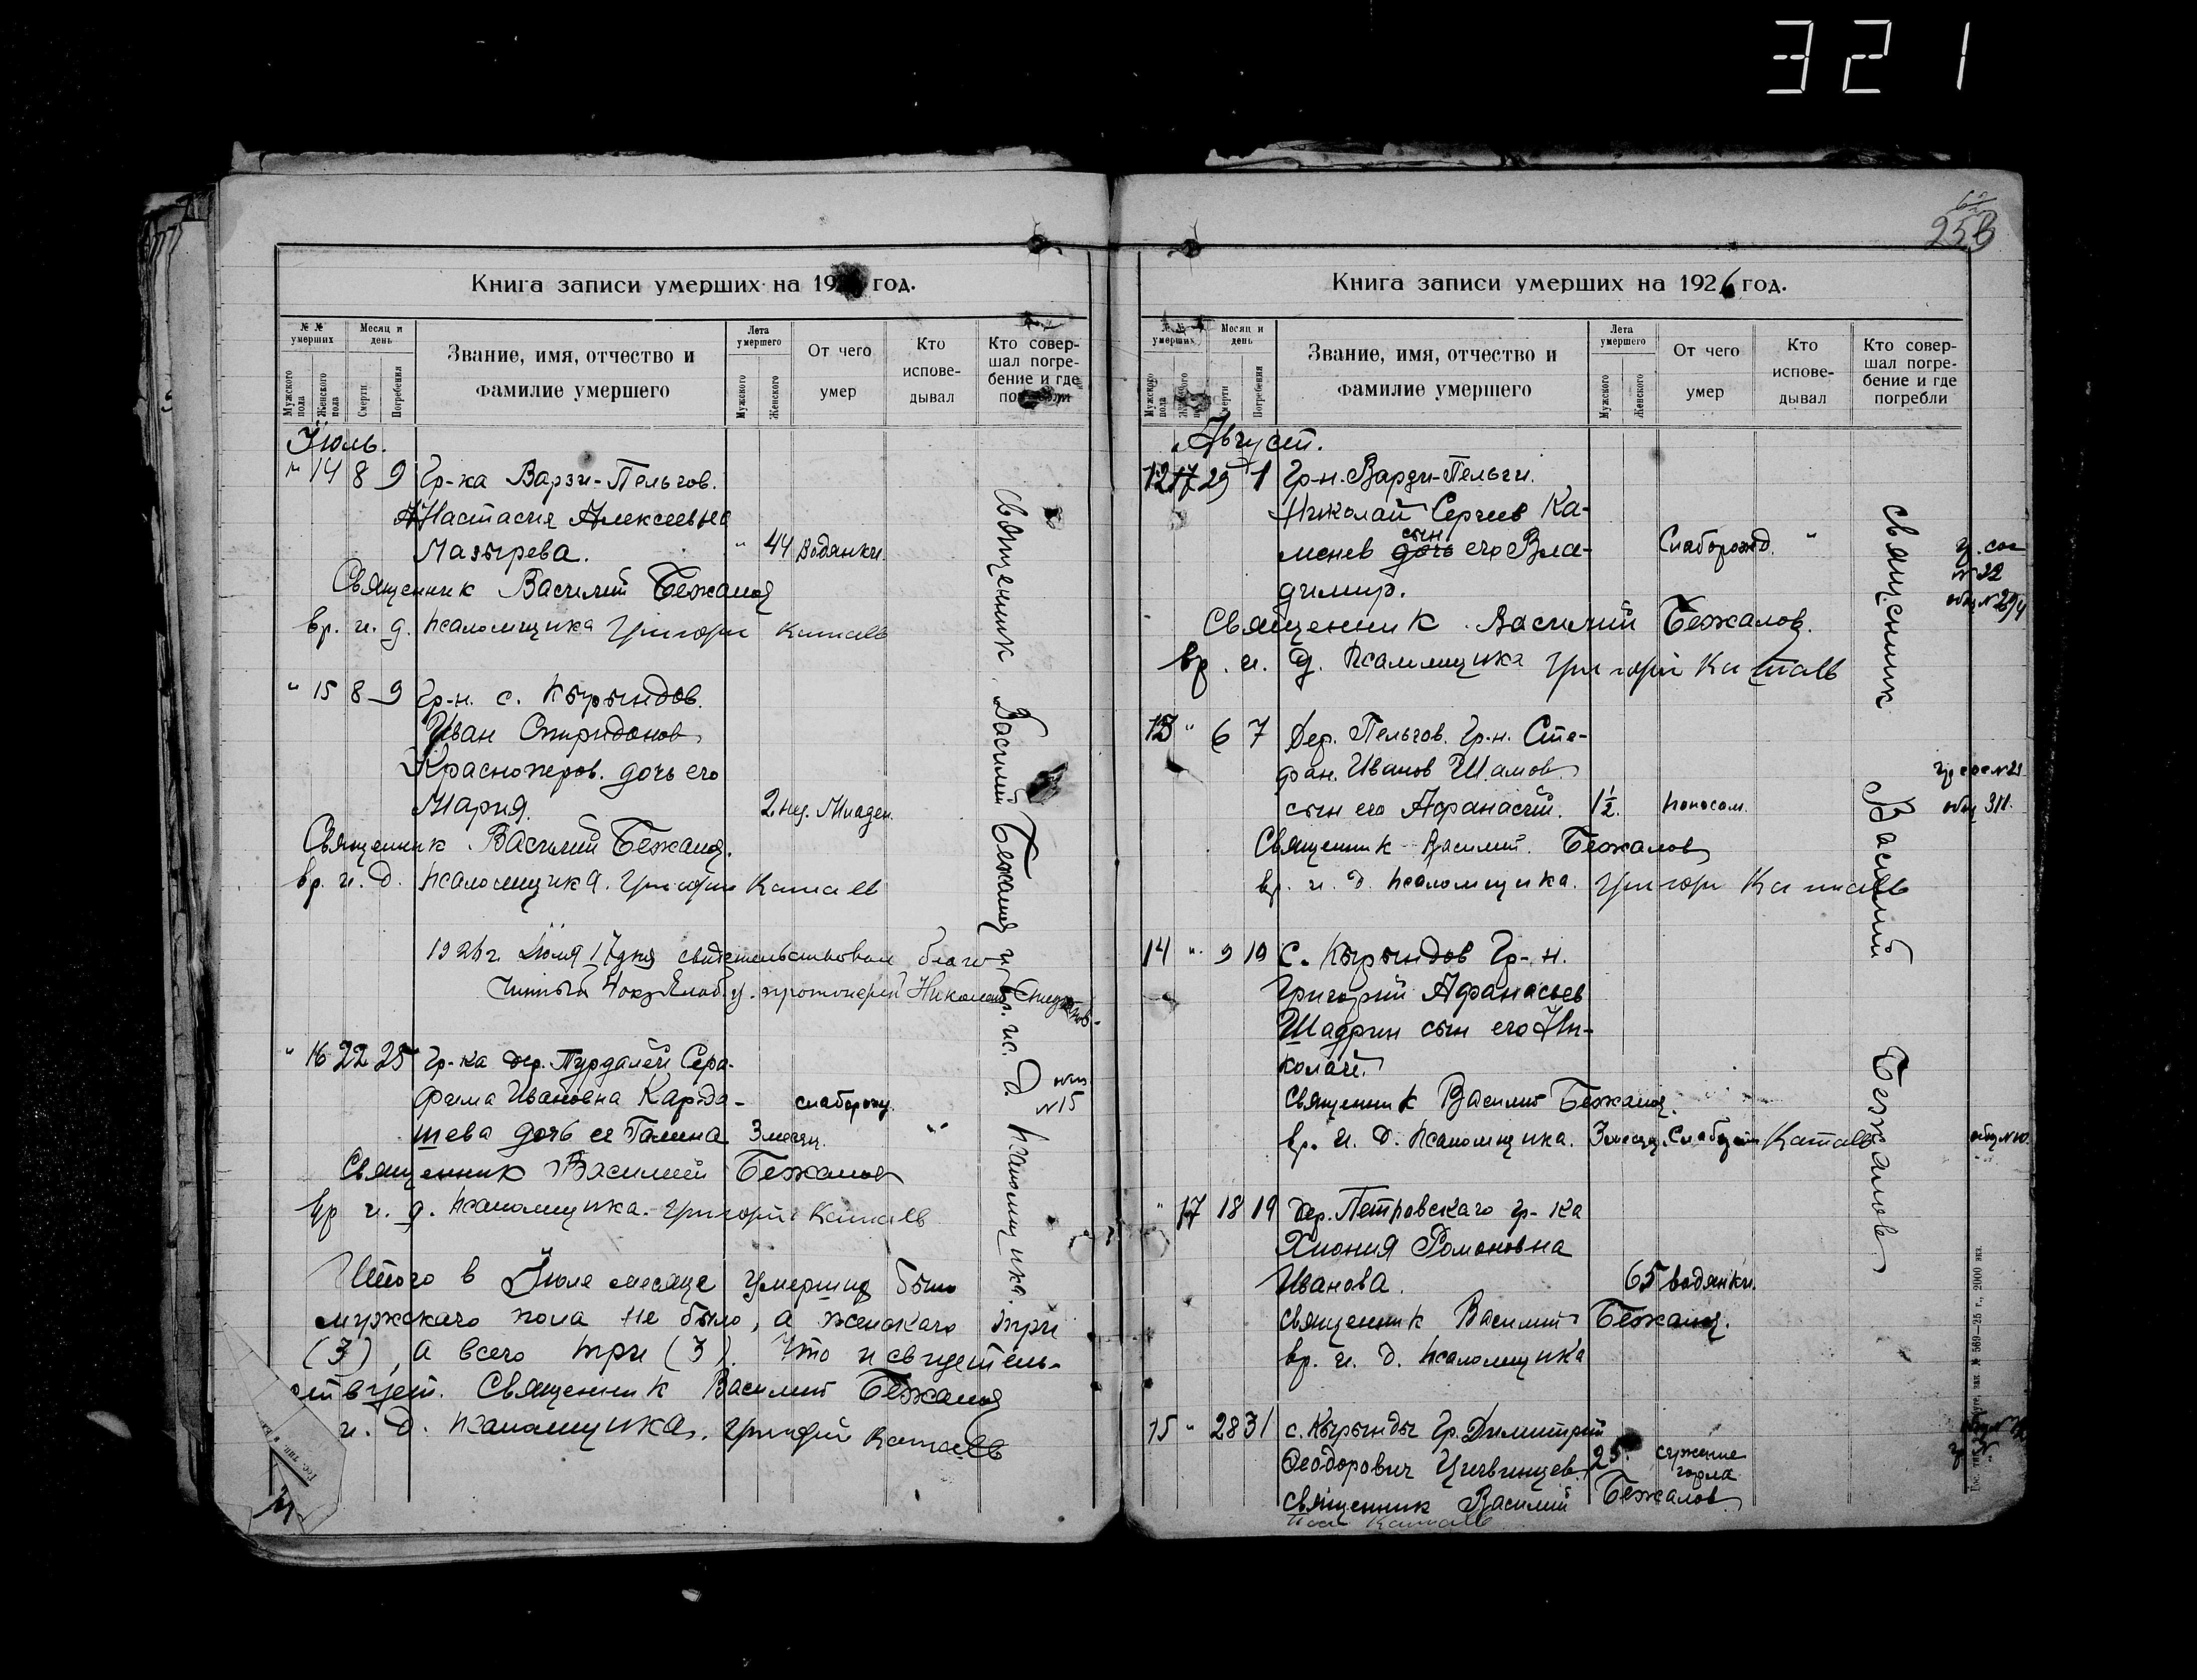 321
Книга записи умерших на 19 год.
№ № умерших
Месяц и день
Звание, имя, отчество и фамилие умершего
Лета умершего
От чего умер
Кто исповедывал
Кто совершал погребение и где погребли
Мужского пола
Женского пола
Смерти
Погребения
Мужского
Женского
Июль.
" 14 8 9 Гр-ка Варзи-Пельгов.
Анастасия Алексеевна
Мазырева. " 44 Водянки.
Священник Василий Бежанов
вр. и. д. псаломщика Григорий Катаев
" 15 8 9 Гр-н. с. Кырындов.
Иван Спиридонов
Красноперов. дочь его
Мария. 2 нед. Младен.
Священник Василий Бежанов.
вр. и. д. псаломщика. Григорий Катаев
1926 г. Июля 17 дня свидетельствовал благо-
чинный 4 окр. Елаб. у. протоиерей Николай
" 16 22 25 Гр-ка дер. Пурдалей Сера-
фима Ивановна Карда-
шева дочь ее Галина 3 месяц. слаборожд. "
№15
Священник Василий Бежанов
вр и. д. псаломщика. Григорий Катаев
Итого в Июле месяце умерших было
мужского пола не было, а женского три
(3), а всего три (3). Что и свидетель-
ствует. Священник Василий Бежанов
и. д. псаломщика. Григорий Катаев
Священник Василий Бежанов и вр. ис. д. псаломщика.
253
Книга записи умерших на 1926 год.
№ № умерших
Месяц и день
Звание, имя, отчество и фамилие умершего
Лета умершего
От чего умер
Кто исповедывал
Кто совершал погребение и где погребли
Мужского пола
Женского пола
Смерти
Погребения
Мужского
Женского
Август.
12 29 1 Гр-н. Варзи-Пельги.
Николай Сергеев Ка-
менев дочь сын его Вла- Слаборожд. "
димир.
гр. сос
№ 22
Священник Василий Бежанов.
вр. и. д. псаломщика Григорий Катаев
13 " 6 7 Дер. Пельгов. Гр-н. Сте-
фан. Иванов Шамов.
сын его Афанасий. 1½. поносом.
общ 311.
Священник Василий Бежанов
вр. и. д. псаломщика. Григорий Катаев
14 " 9 10 С. Кырындов Гр-н.
Григорий Афанасьев
Шадрин сын его Ни-
колай.
Священник Василий Бежанов.
вр. и. д. псаломщика. 3 месяц. Катаев
" 17 18 19 дер. Петровского гр-ка
Хиония Романовна
Иванова. 65 водянки.
Священник Василий Бежанов.
вр. и. д. псаломщика
15 " 28 31 с. Кырынды Гр. Димитрий
Феодорович 25. сужение
горла
Священник Василий Бежанов
Катаев
Священник Василий Бежанов
зак. № 569—25 г., 2000 экз.